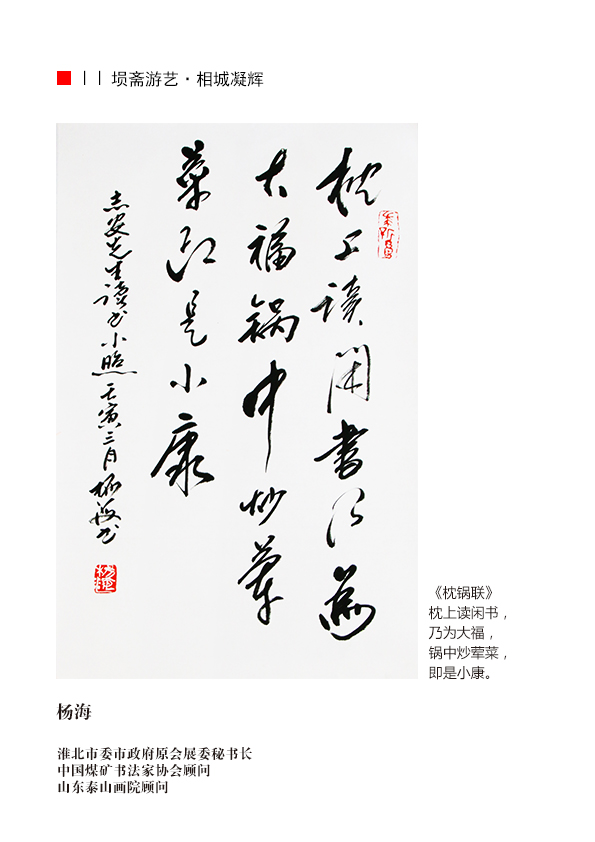 丨丨 埙斋游艺·相城凝辉
枕上读闲书乃为
大福锅中炒荤
菜即是小康
志安先生读书小照 壬寅三月 杨海书
《枕锅联》
枕上读闲书，
乃为大福，
锅中炒荤菜，
即是小康。
杨海
淮北市委市政府原会展委秘书长
中国煤矿书法家协会顾问
山东泰山画院顾问